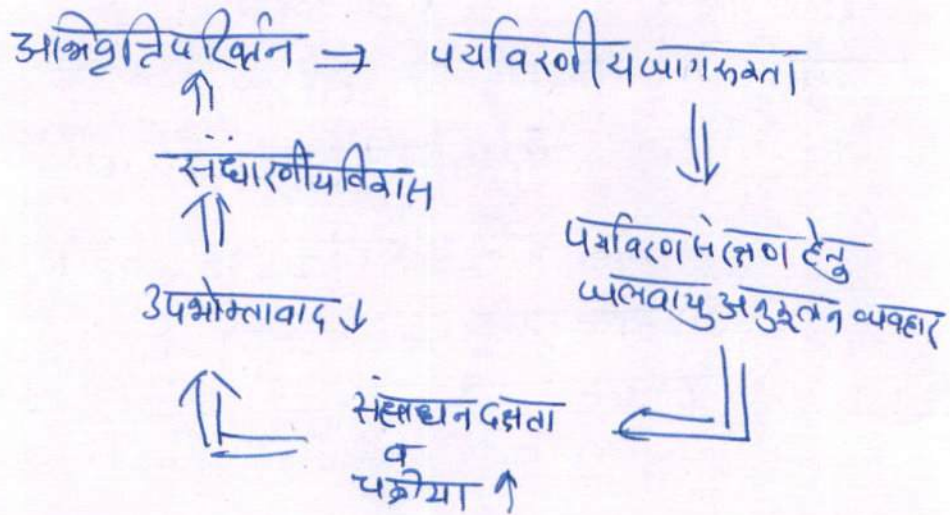 अभिवृत्ति परिवर्तन → पर्यावरणीय जागरूकता
↑
संधारणीय विकास
⇓
पर्यावरण संरक्षण हेतु
जलवायु अनुकूलन व्यवहार
⇑
उपभोक्तावाद ↓
संसाधन दक्षता
व
चक्रीया ↑